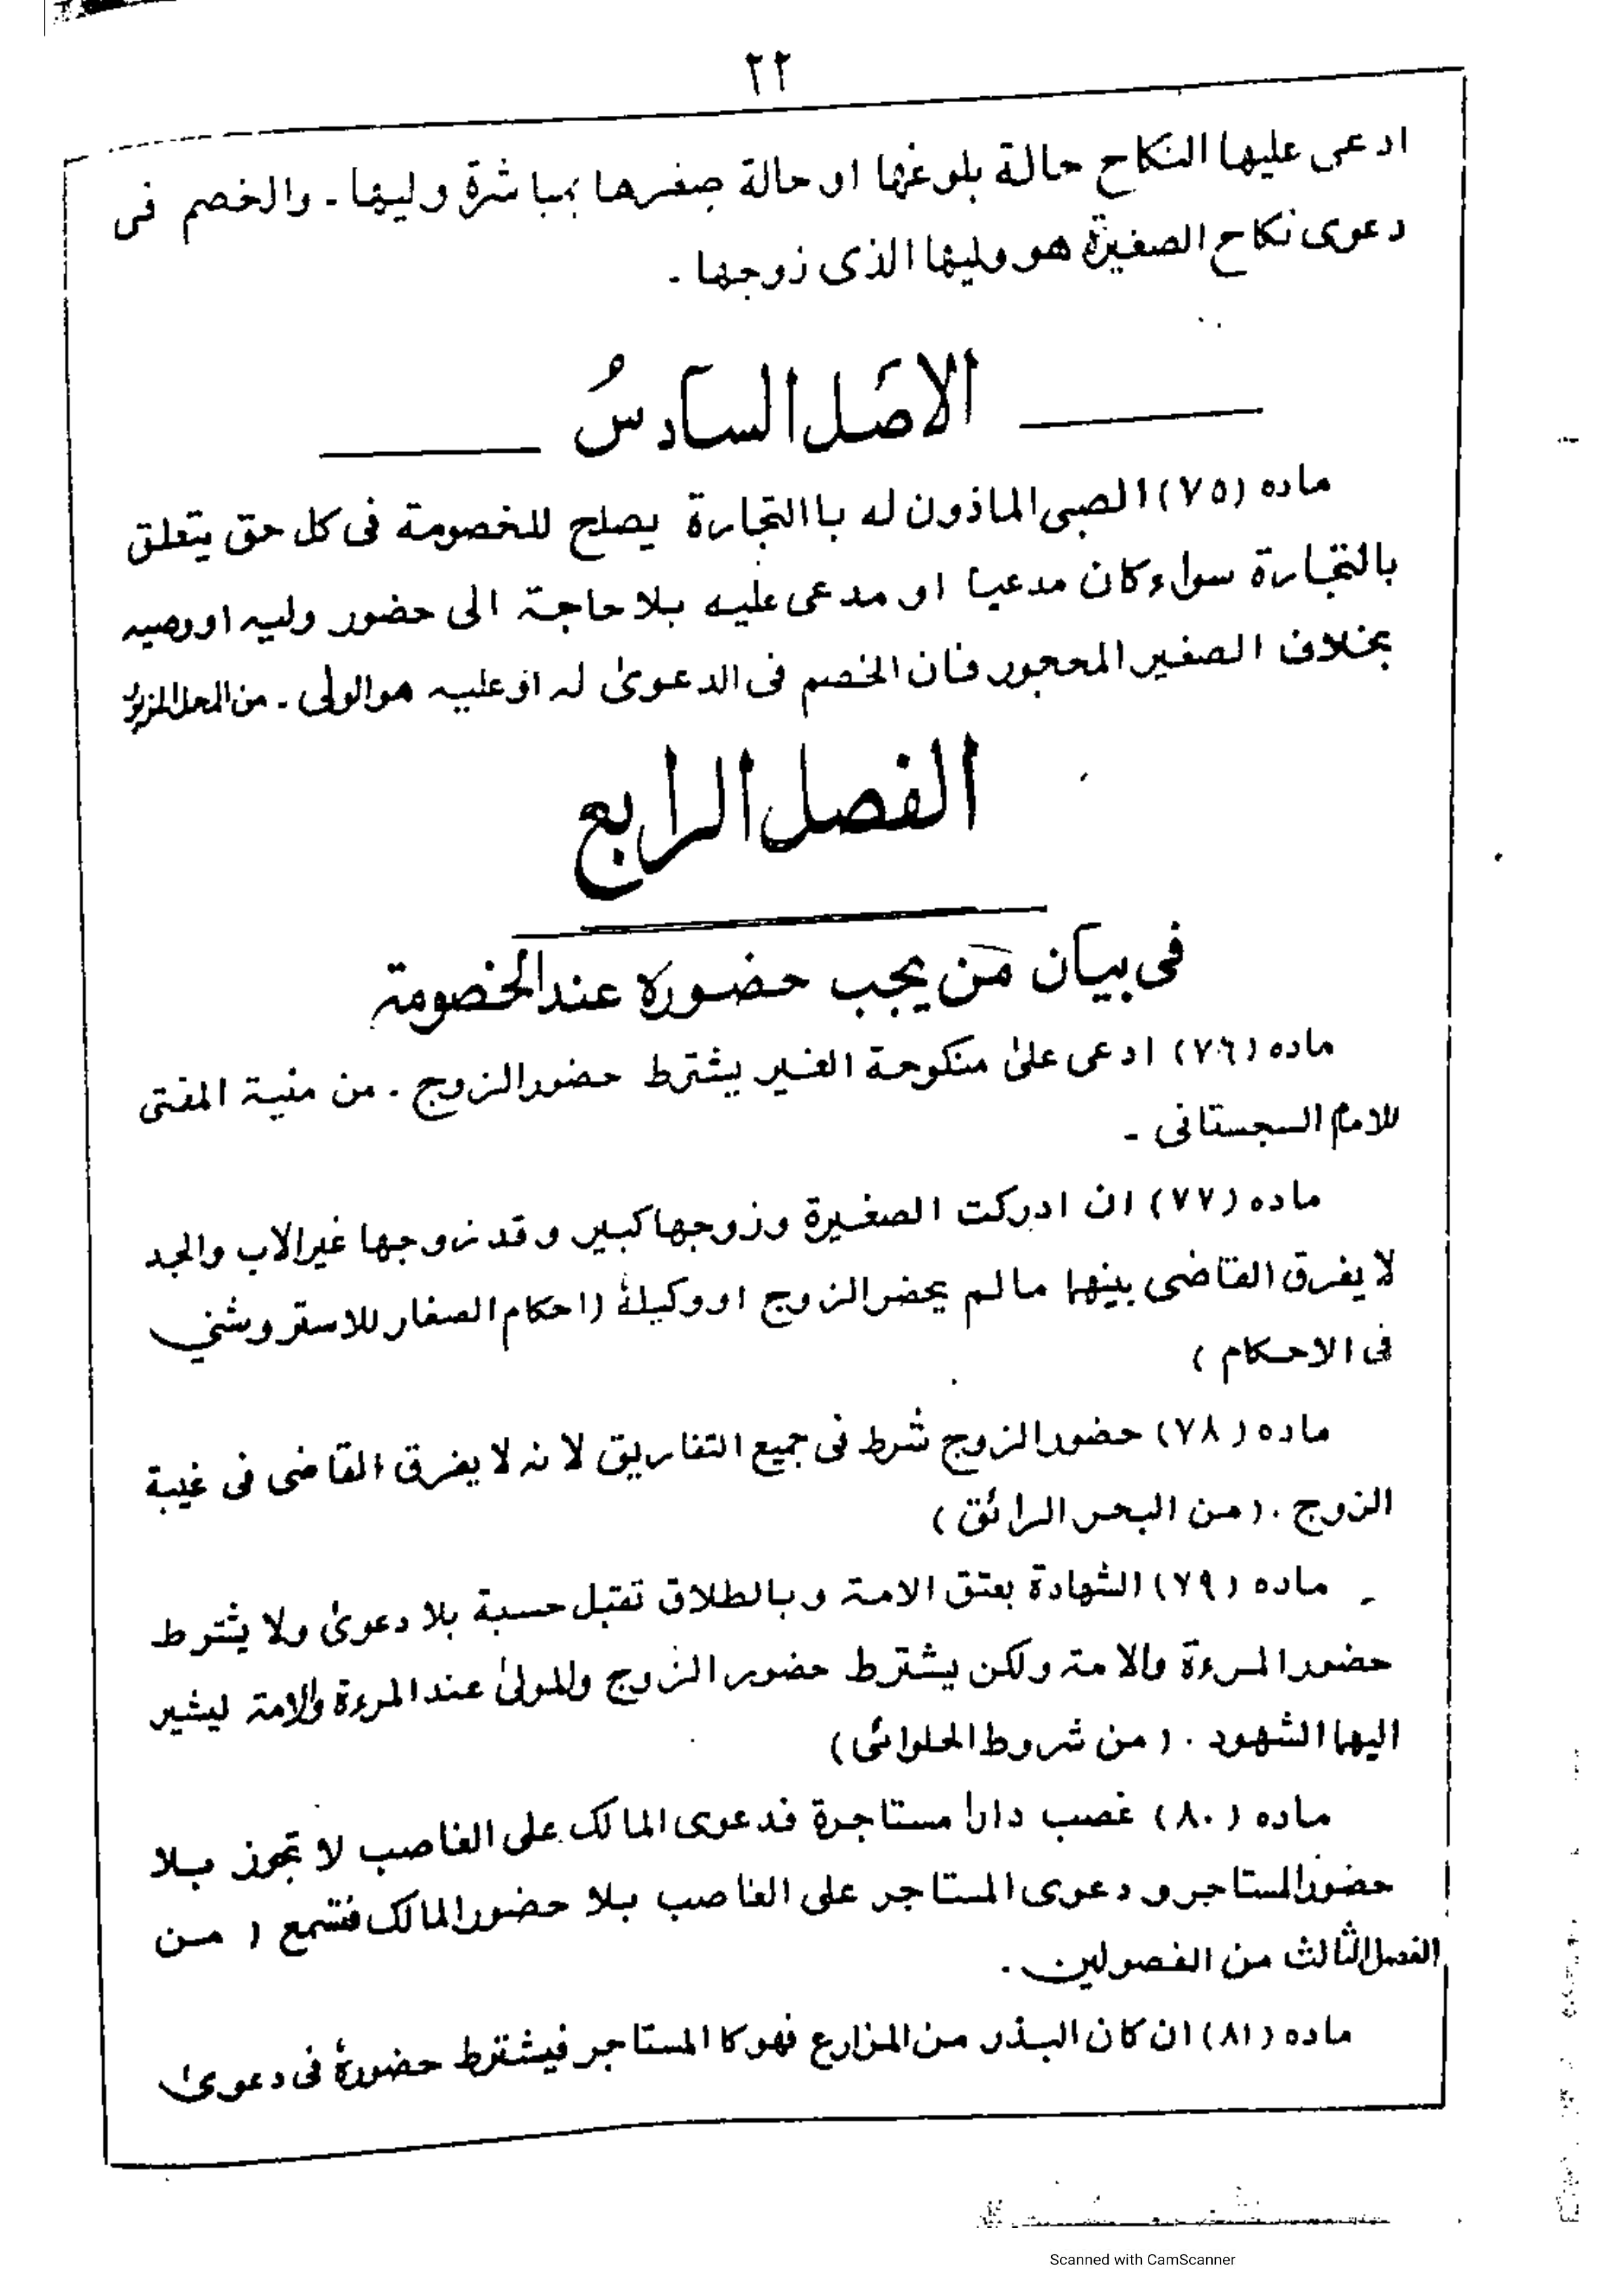 ٢٢
ادعى عليها النكاح حالة بلوغها او حالة صغرها بمباشرة وليها ـ والخصم فى
دعوى نكاح الصغيرة هو وليها الذى زوجها ـ
الاصل السادس
ماده (٧٥) الصبى الماذون له باالتجارة يصلح للخصومة فى كل حق يتعلق
بالتجارة سواء كان مدعيا او مدعى عليه بلا حاجة الى حضور وليه او وصيه
بخلاف الصغير المحجور فان الخصم فى الدعوىٰ له او عليه هو الولى ـ من المحل المزبور
الفصل الرابع
فى بيان من يجب حضوره عند الخصومة
ماده (٧٦) ادعى علىٰ منكوحة الغير يشترط حضور الزوج ـ من منية المفتى
للامام السجستانى ـ
ماده (٧٧) ان ادركت الصغيرة وزوجها كبير وقد زوجها غير الاب والجد
لا يفرق القاضى بينهما مالم يحضر الزوج او وكيله (احكام الصغار للاستروشني
فى الاحكام )
ماده (٧٨) حضور الزوج شرط فى جميع التفاريق لانه لا يفرق القاضى فى غيبة
الزوج . (من البحر الرائق )
ماده (٧٩) الشهادة بعتق الامة وبالطلاق تقبل حسبة بلا دعوىٰ ولا يشترط
حضور المرءة والامة ولكن يشترط حضور الزوج والمولىٰ عند المرءة والامة ليشير
اليهما الشهود . ( من شروط الحلوائى )
ماده (٨٠) غصب دارا مستاجرة فدعوى المالك على الغاصب لا تجوز بلا
حضور المستاجر و دعوى المستاجر على الغاصب بلا حضور المالك فتسمع ( من
الفصل الثالث من الفصولين .
ماده (٨١) ان كان البذر من المزارع فهو كا المستاجر فيشترط حضورهٗ فى دعوىٰ
Scanned with CamScanner